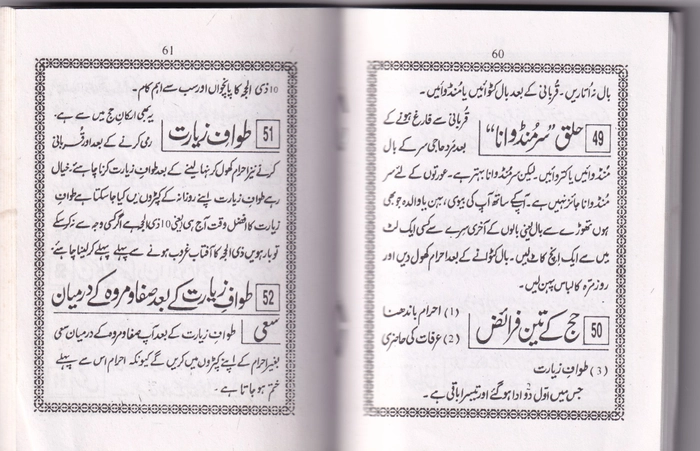 60
بال نہ اُتاریں۔ قُربانی کے بعد بال کٹوائیں یا مُنڈوائیں۔
49 حلق ”سر مُنڈوانا“
قُربانی سے فارغ ہونے کے
بعد مَرد حاجی سر کے بال
مُنڈوائیں یا کتروائیں۔ لیکن سر مُنڈوانا بہتر ہے۔ عورتوں کے لئے سر
مُنڈوانا جائز نہیں ہے۔ آپکے ساتھ آپ کی بیوی، بہن یا والدہ جو بھی
ہوں تھوڑے سے بال اپنی بالوں کے آخری سرے سے کی ایک لٹ
میں سے ایک اِنچ کاٹ لیں۔ بال کٹوانے کے بعد احرام کھول دیں اور
روز مرّہ کا لباس پہن لیں۔
50 حج کے تین فرائض
(1) احرام باندھنا
(2) عرفات کی حاضری
(3) طوافِ زیارت
جس میں اوّل دو ادا ہو گئے اور تیسرا باقی ہے۔
61
10 ذی الحجہ کا پانچواں اور سب سے اہم کام۔
51 طوافِ زیارت
یہ بھی ارکانِ حج میں سے ہے۔
رمی کرنے کے بعد اور قُربانی
کرنے نیز احرام کھول کر نہا لینے کے بعد طوافِ زیارت کرنا چاہئے۔ خیال
رہے طوافِ زیارت اپنے روزانہ کے کپڑوں میں کیا جاسکتا ہے طوافِ
زیارت کا افضل وقت آج ہی یعنی 10 ذی الحجہ ہے اگر کسی وجہ سے نہ کر سکے
تو بارہویں ذی الحجہ کا آفتاب غروب ہونے سے پہلے پہلے کر لینا چاہئے۔
52 طوافِ زیارت کے بعد صفا و مروہ کے درمیان
سعی
طوافِ زیارت کے بعد آپ صفا و مروہ کے درمیان سعی
بغیر احرام کے اپنے کپڑوں میں کریں گے کیونکہ احرام اس سے پہلے
ختم ہو جاتا ہے۔